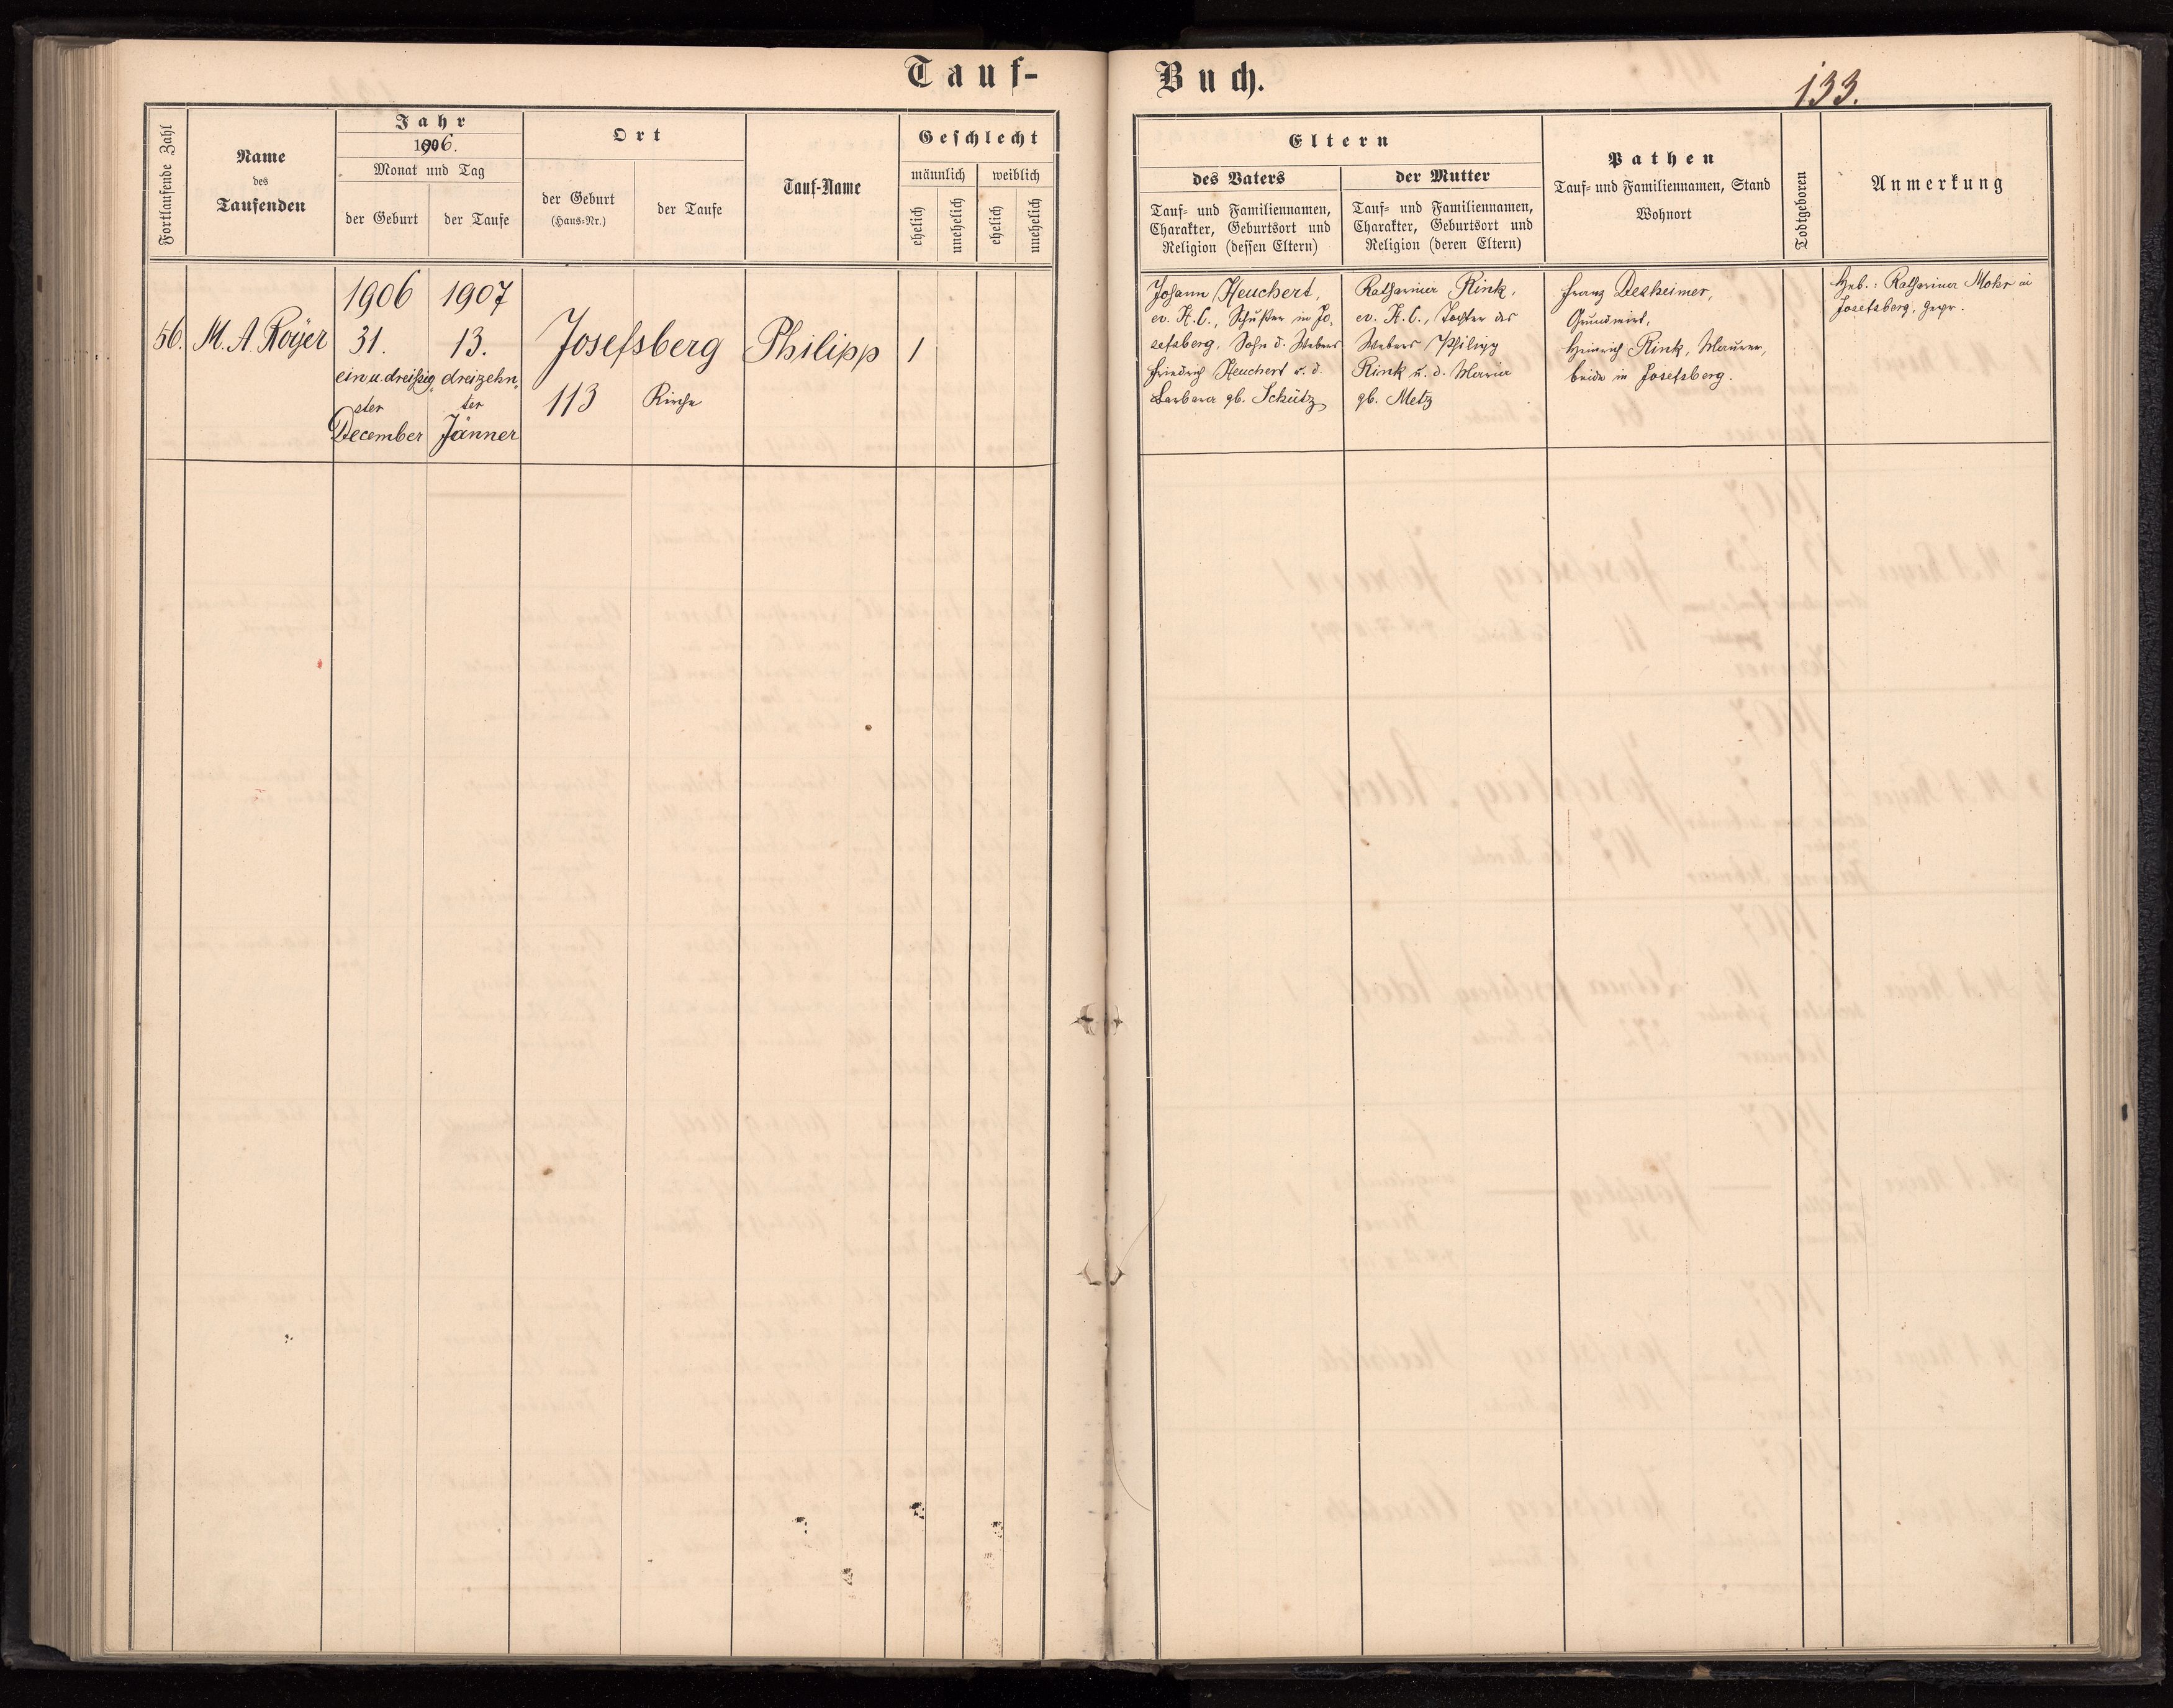 Tauf-
Buch.
133.
Fortlaufende Zahl
Name
des
Taufenden
Jahr
1906.
Monat und Tag
der Geburt
der Taufe
Ort
der Geburt
(Haus-Nr.)
der Taufe
Tauf-Name
Geschlecht
männlich
weiblich
ehelich
unehelich
ehelich
unehelich
Eltern
des Vaters
Tauf- und Familiennamen,
Charakter, Geburtsort und
Religion (dessen Eltern)
der Mutter
Tauf- und Familiennamen,
Charakter, Geburtsort und
Religion (deren Eltern)
Pathen
Tauf- und Familiennamen, Stand
Wohnort
Todtgeboren
Anmerkung
56.
M. A. Royer
1906
31.
ein u. dreißig
ster
December
1907
13.
dreizehn
ter
Jänner
Josefsberg
113
Kirche
Philipp
1
Johann Heuchert,
ev. H. C., Schuster in Jo-
sefsberg, Sohn d. Webers
Friedrich Heuchert u. d.
Barbara gb. Schütz
Katharina Rink,
ev. H. C., Tochter des
Webers Philipp
Rink u. d. Maria
gb. Metz
Franz Desheimer,
Grundwirt,
Heinrich Rink, Maurer,
beide in Josefsberg.
Heb.: Katharina Mohr in
Josefsberg, gepr.